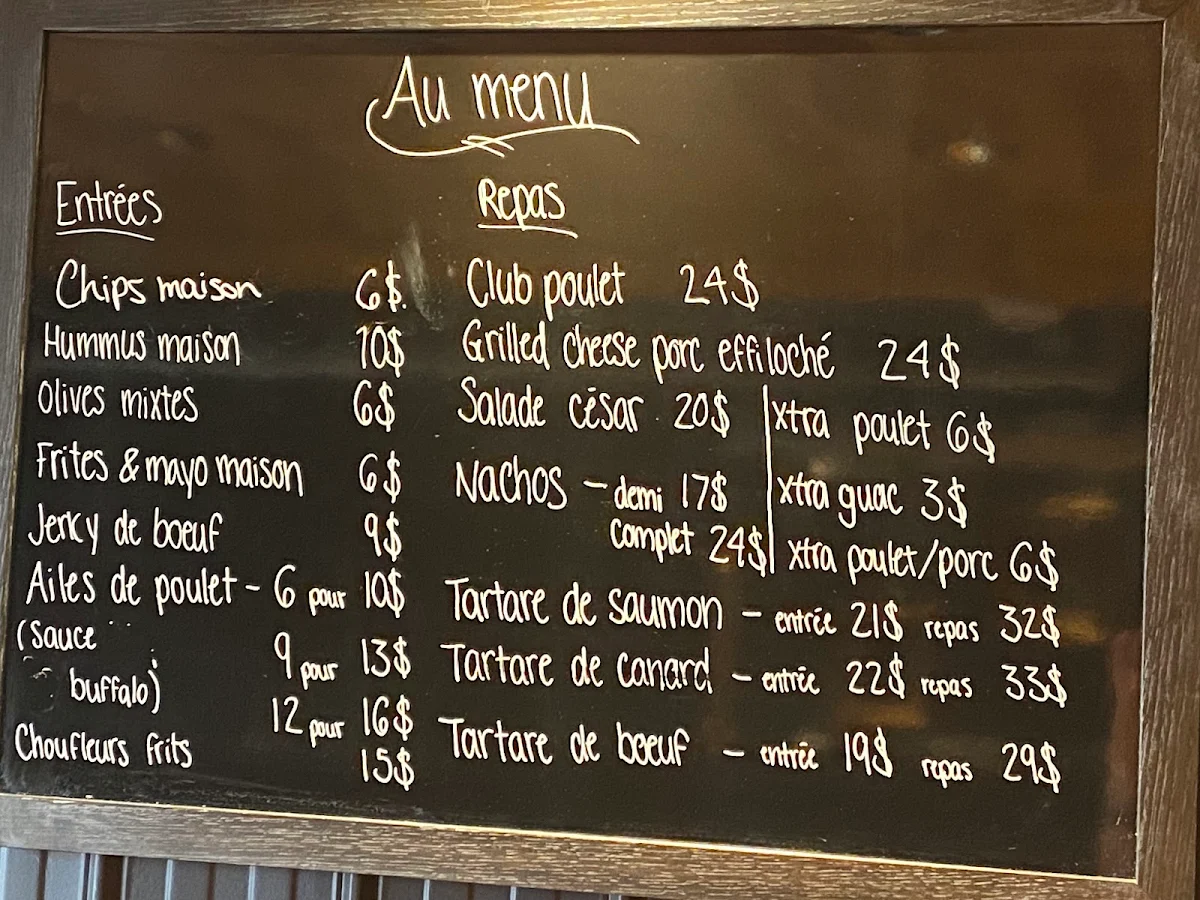 Au menu
Entrées
Chips maison 6$
Hummus maison 10$
Olives mixtes 6$
Frites & mayo maison 6$
Jerky de boeuf 9$
Ailes de poulet - 6 pour 10$
(sauce buffalo) 9 pour 13$
12 pour 16$
Choufleurs frits 15$
Repas
Club poulet 24$
Grilled cheese porc effiloché 24$
Salade césar 20$ | xtra poulet 6$
Nachos - demi 17$ | xtra guac 3$
complet 24$ | xtra poulet/porc 6$
Tartare de saumon - entrée 21$ repas 32$
Tartare de canard - entrée 22$ repas 33$
Tartare de boeuf - entrée 19$ repas 29$